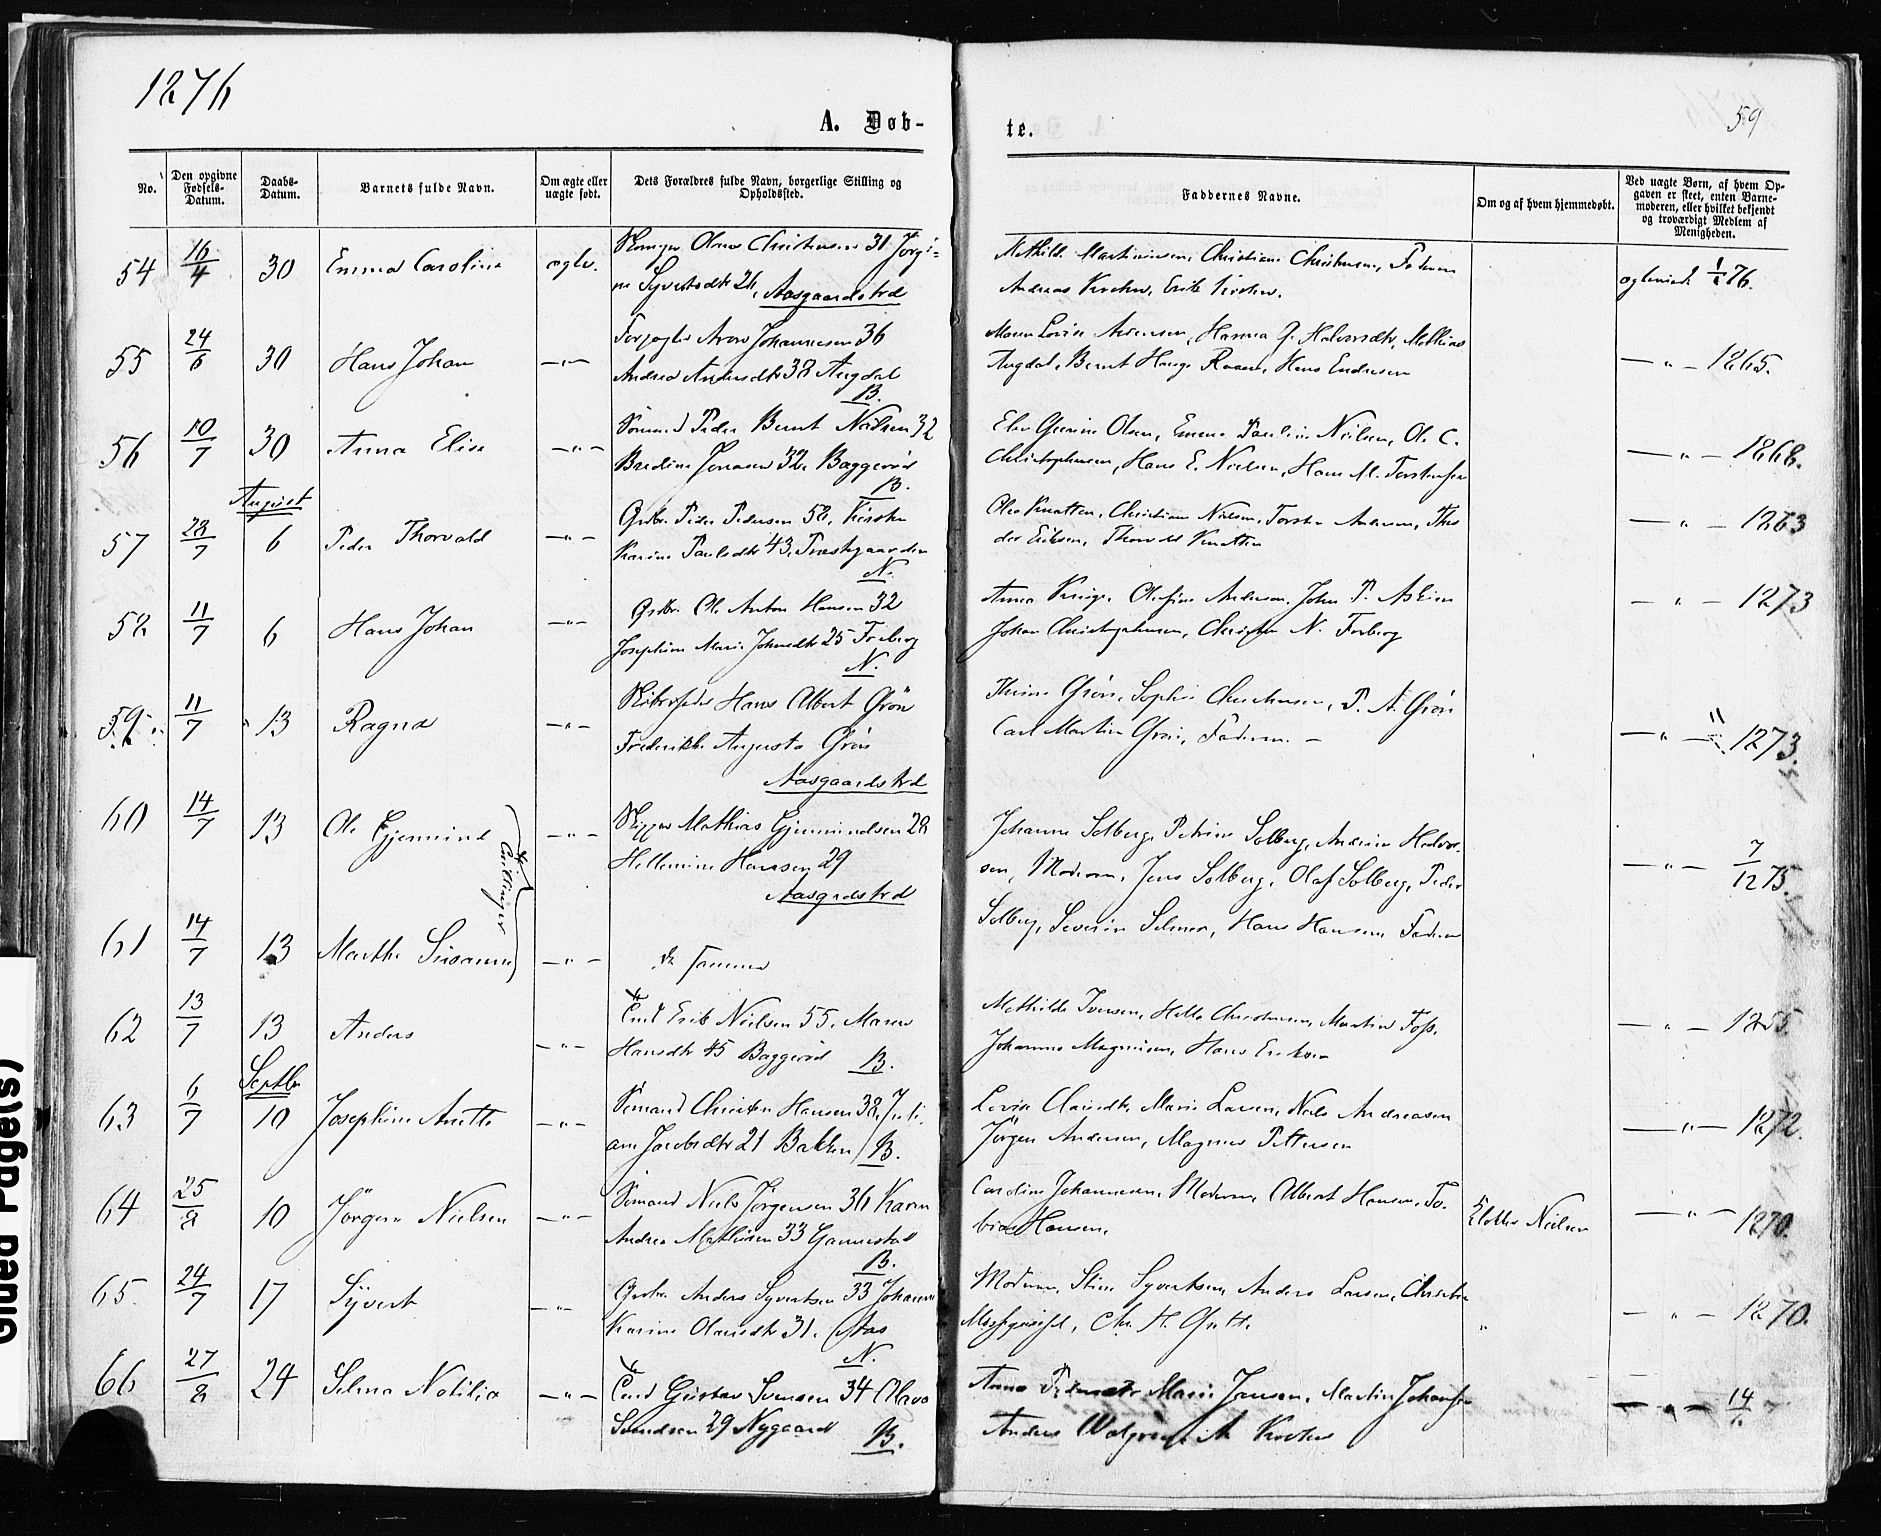 1876
A. Døb-
te.
59
No.
Den opgivne Fødsels-Datum.
Daabs-Datum.
Barnets fulde Navn.
Om ægte eller uægte født.
Dets Forældres fulde Navn, borgerlige Stilling og Opholdssted.
Faddernes Navne.
Om og af hvem hjemmedøbt.
Ved uægte Børn, af hvem Op-
gaven er skeet, enten Barne-
moderen, eller hvilket bekjendt
og troværdigt Medlem af
Menigheden.
54 16/4 30 Emma Caroline
Olaus Christensen 31 Jørgi-
ne Syvertsdtr 26, Aasgaardstrd
Mathilde Martinsen, Christiane Christensen, Faderen
76.
55 24/6 30 Hans Johan
Johannesen 36
Andrea Andersdtr 38 Augdal
B.
Maren Lovise Andersen, Hanna J. Halvorsdtr, Mathias
Augdal, Bernt Hauge Raaen, Hans Endresen
— " — 1865.
56 10/7 30 Anna Elise — " —
Sømand Peder Bernt Nielsen 32
Bredine Jonasen 32, Baggerød
B.
Olsen, Emma Pauline Nielsen, Ole C.
Christophersen, Hans E. Nielsen, Hans M. Torstensen
— " — 1868.
August
57 28/7 6 Peder Thorvald — " —
Gdbr. Peder Pedersen 58, Kirsten
Karine Paulsdtr 43, Præstegaarden
N.
Olea Knatten, Christiane Nielsen, Torsten Andersen, Theo
dor Eriksen, Thorvald Knatten
— " — 1863
58 11/7 6 Hans Johan — " —
Gdbr. Ole Anton Hansen 32
Josephine Marie Johnsdtr 25 Freberg
N.
Olefine Andersen, John P. Askim
Johan Christophersen, Christen N. Forberg
— " — 1873
59 11/7 13 Ragna — " —
Hans Albert Grön
Frederikke Augusta Grön
Aasgaardstrd
Thrine Grön, Sophie Christensen, P. A. Grön
Carl Martin Grön, Faderen. —
— " — 1873.
60 14/7 13 Ole Gjermund — " —
Tvillinger
Skipper Mathias Gjermundsen 28
Hellemine Hanssen 29
Aasgrdstrd
Johanne Solberg, Petrine Solberg, Andrine Halvor-
sen, Moderen, Jens Solberg, Olaf Solberg, Peder
Solberg, Severin Selmer, Hans Hansen, Faderen
— " — 7/12 75.
61 14/7 13 Marthe Susanne — " —
de samme
62 13/7 13 Anders — " —
Erik Nielsen 55, Maren
Hansdtr 45 Baggerød B.
Mathilde Iversen, Helle Christensen, Martin Foss,
Johannes Magnusen, Hans Eriksen
— " — 1855.
Septbr
63 6/7 10 Josephine Anette — " —
Sømand Christen Hansen 38, Juli-
ane Jacobsdtr 21 Bakken B.
Lovise Olausdtr, Marie Larsen, Niels Andreasen
Jørgen Andersen, Magnus Pettersen
— " — 1872.
64 25/8 10 Jørgen Nielsen — " —
Sømand Niels Jørgensen 36 Karen
Andrea Mathisen 33 Gannestad
B.
Caroline Johannesen, Moderen, Albert Hansen, To-
bias Hansen.
Nielsen
— " — 1870.
65. 24/7 17 Syvert — " —
Gdbr. Anders Syvertsen 33 Johanne
Karine Olausdtr 31. Aas
N.
Moderen, Stine Syvertsen, Anders Larsen, Christian
"
— " — 1870.
66 27/8 24 Selma Natilia — " —
Gustav Svensen 34 Olava
Svendsen 29 Nygaard B.
Anna Marie Jansen, Martin Johansen
Anders
— " — 14